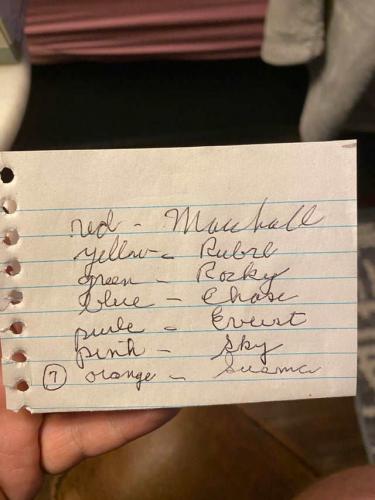 red - Marshall
yellow - Ruble
green - Rocky
blue - Chase
purle - Everst
pink - Sky
⑦ orange - Suema